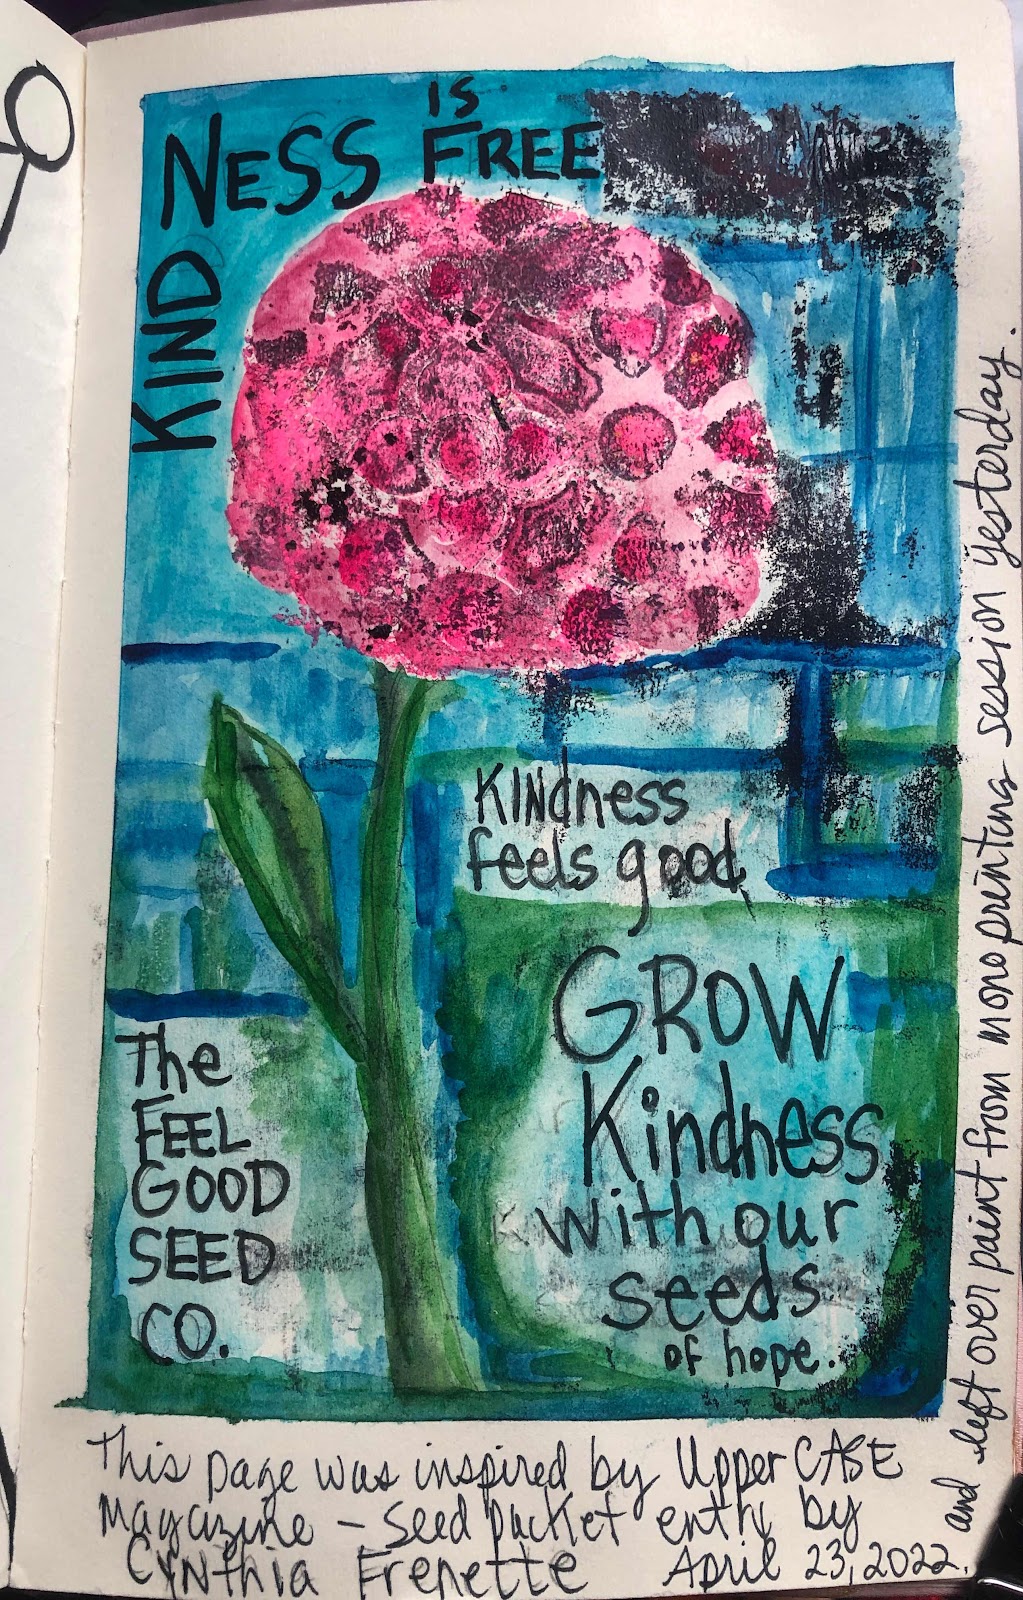 KINDNESS IS FREE
KINdness
feels good
GROW
Kindness
with our
seeds
of hope.
The
FEEL
GOOD
SEED
CO.
This page was inspired by UpperCASE
Magazine – Seed packet entry by
Cynthia Frenette April 23, 2022.
and left over paint from mono printing session yesterday.